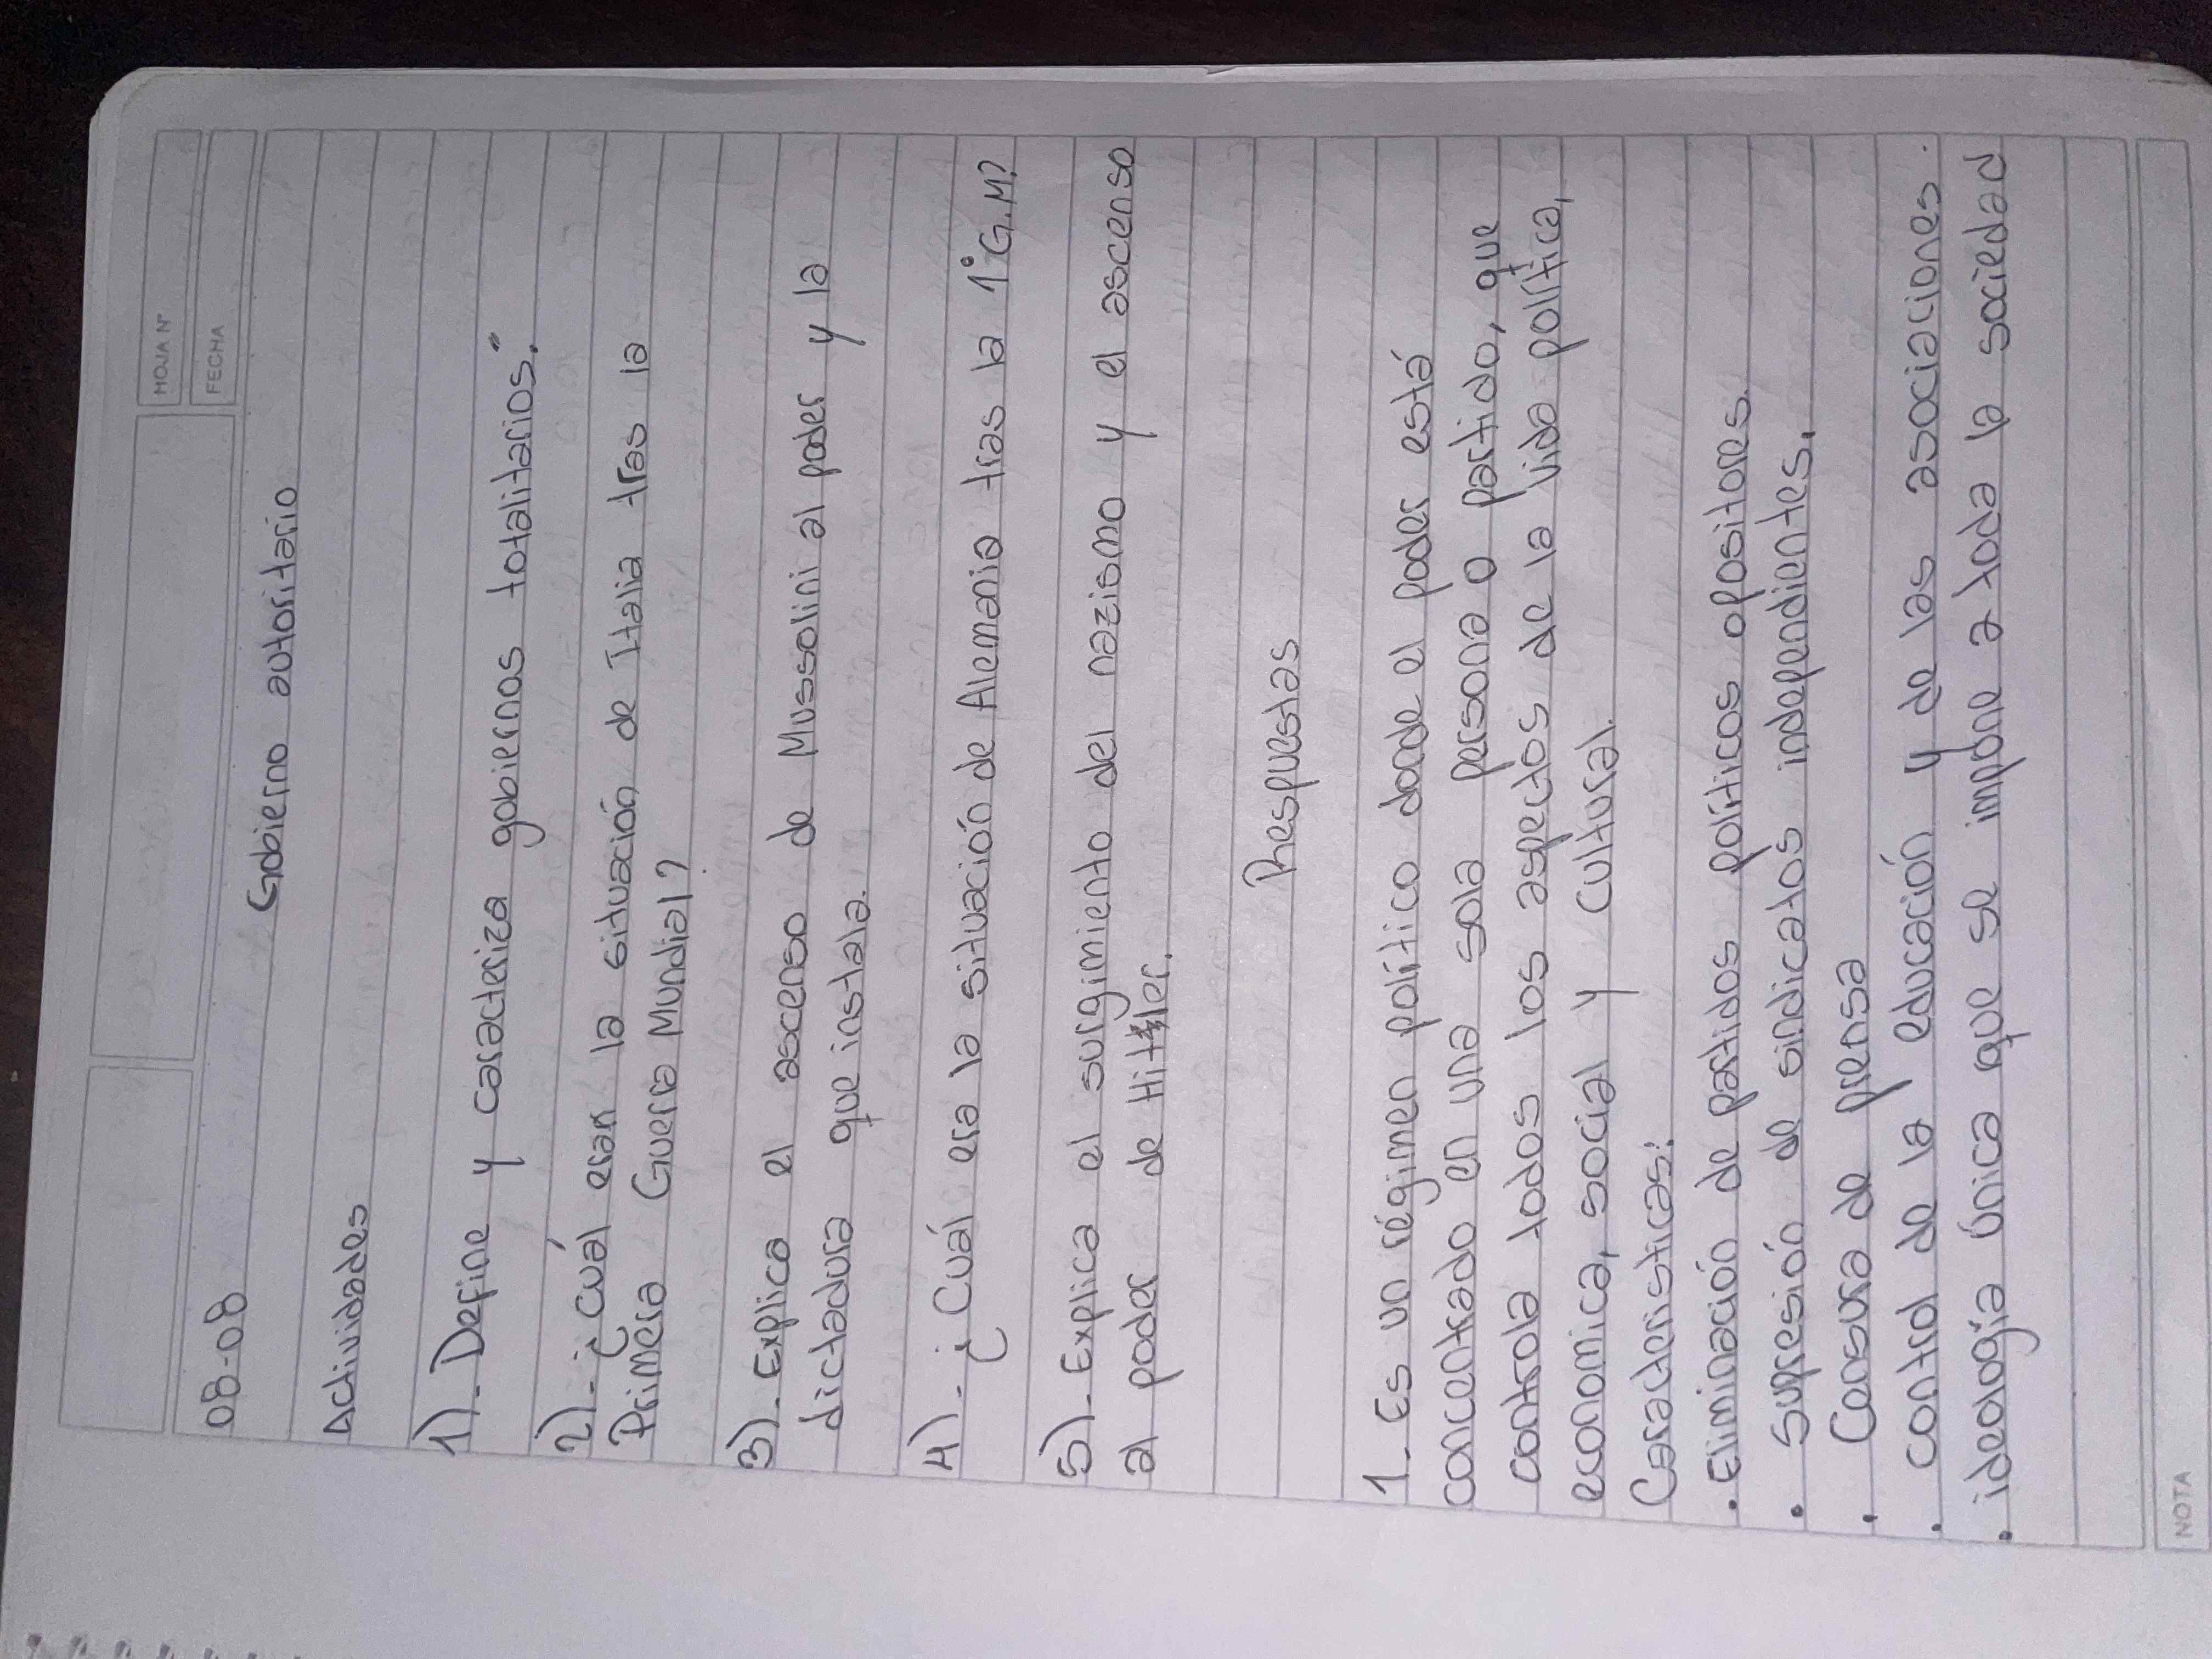 HOJA N°
FECHA
08-08
Gobierno autoritario
Actividades
1)- Define y caracteriza gobiernos totalitarios."
2)- ¿Cuál eran la situación de Italia tras la
Primera Guerra Mundial?
3)- Explica el ascenso de Mussolini al poder y la
dictadura que instala.
4)- ¿Cuál era la situación de Alemania tras la 1°G.M?
5)- Explica el surgimiento del nazismo y el ascenso
al poder de Hitler.
Respuestas
1- Es un régimen político donde el poder está
concentrado en una sola persona o partido, que
controla todos los aspectos de la vida política,
economica, social y cultural.
Caracteristicas:
• Eliminación de partidos políticos opositores.
• Supresión de sindicatos independientes.
• Censura de prensa
• control de la educación y de las asociaciones.
• ideología única que se impone a toda la sociedad
NOTA